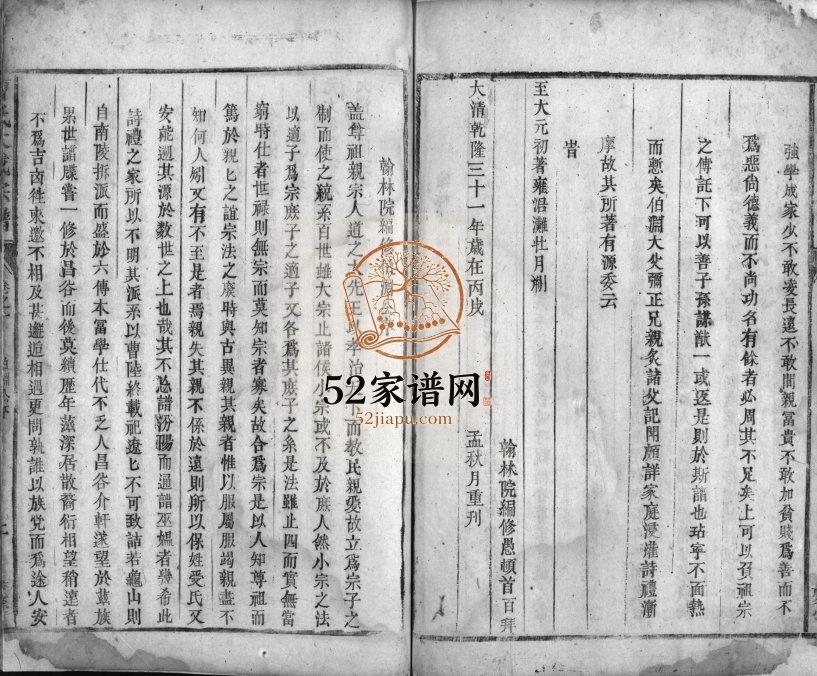 強學成家少不敢凌長遠不敢間親富貴不敢加貧賤爲善而不
爲惡尙德義而不尚功名有餘者必周其不足矣上可以負祖宗
之傳託下可以善子孫謀猷一或逐是則於斯譜也玷寧不面熱
而慙矣伯淵大父彌正兄親炙諸父記聞頗詳家庭浸灌詩禮漸
摩故其所著有源委云
旹
至大元初著雍涒灘牡月
翰林院編修愚頓首百拜
大清乾隆三十一年歲在丙戌 孟秋月重刊
翰林院編修
蓋尊祖親宗人道之 先王以孝治 而敎民親愛故立爲宗子之
制而使之統系百世雖大宗止諸侯小宗或不及於庶人然小宗之法
以適子爲宗庶子之適子又各爲其庶子之系是法雖止四而實無當
窮時仕者世祿則無宗而莫知宗者寡矣故合爲宗是以人知尊祖而
篤於親匕之誼宗法之廢時與古異親其親者惟以服屬服竭親盡不
如何人矧又有不至是者焉親失其親不係於遠則所以保姓受氏又
安能遡其源於數世之上也哉其不忩譜汾陽而逼譜巫媼者幾希此
詩禮之家所以不明其派系以曹陸終載祀遠匕不可致詰若龜山則
自南陵拆派而盛於六傳本富學仕代不乏人昌谷介軒遂望於茲族
累世譜牒嘗一修於昌谷而後莫續歷年滋深居散裔衍相望稍遠者
不爲吉凶徃來邀不相及甚邂逅相遇更問孰誰以族党而爲途人安
52家谱网
52jiapu.com